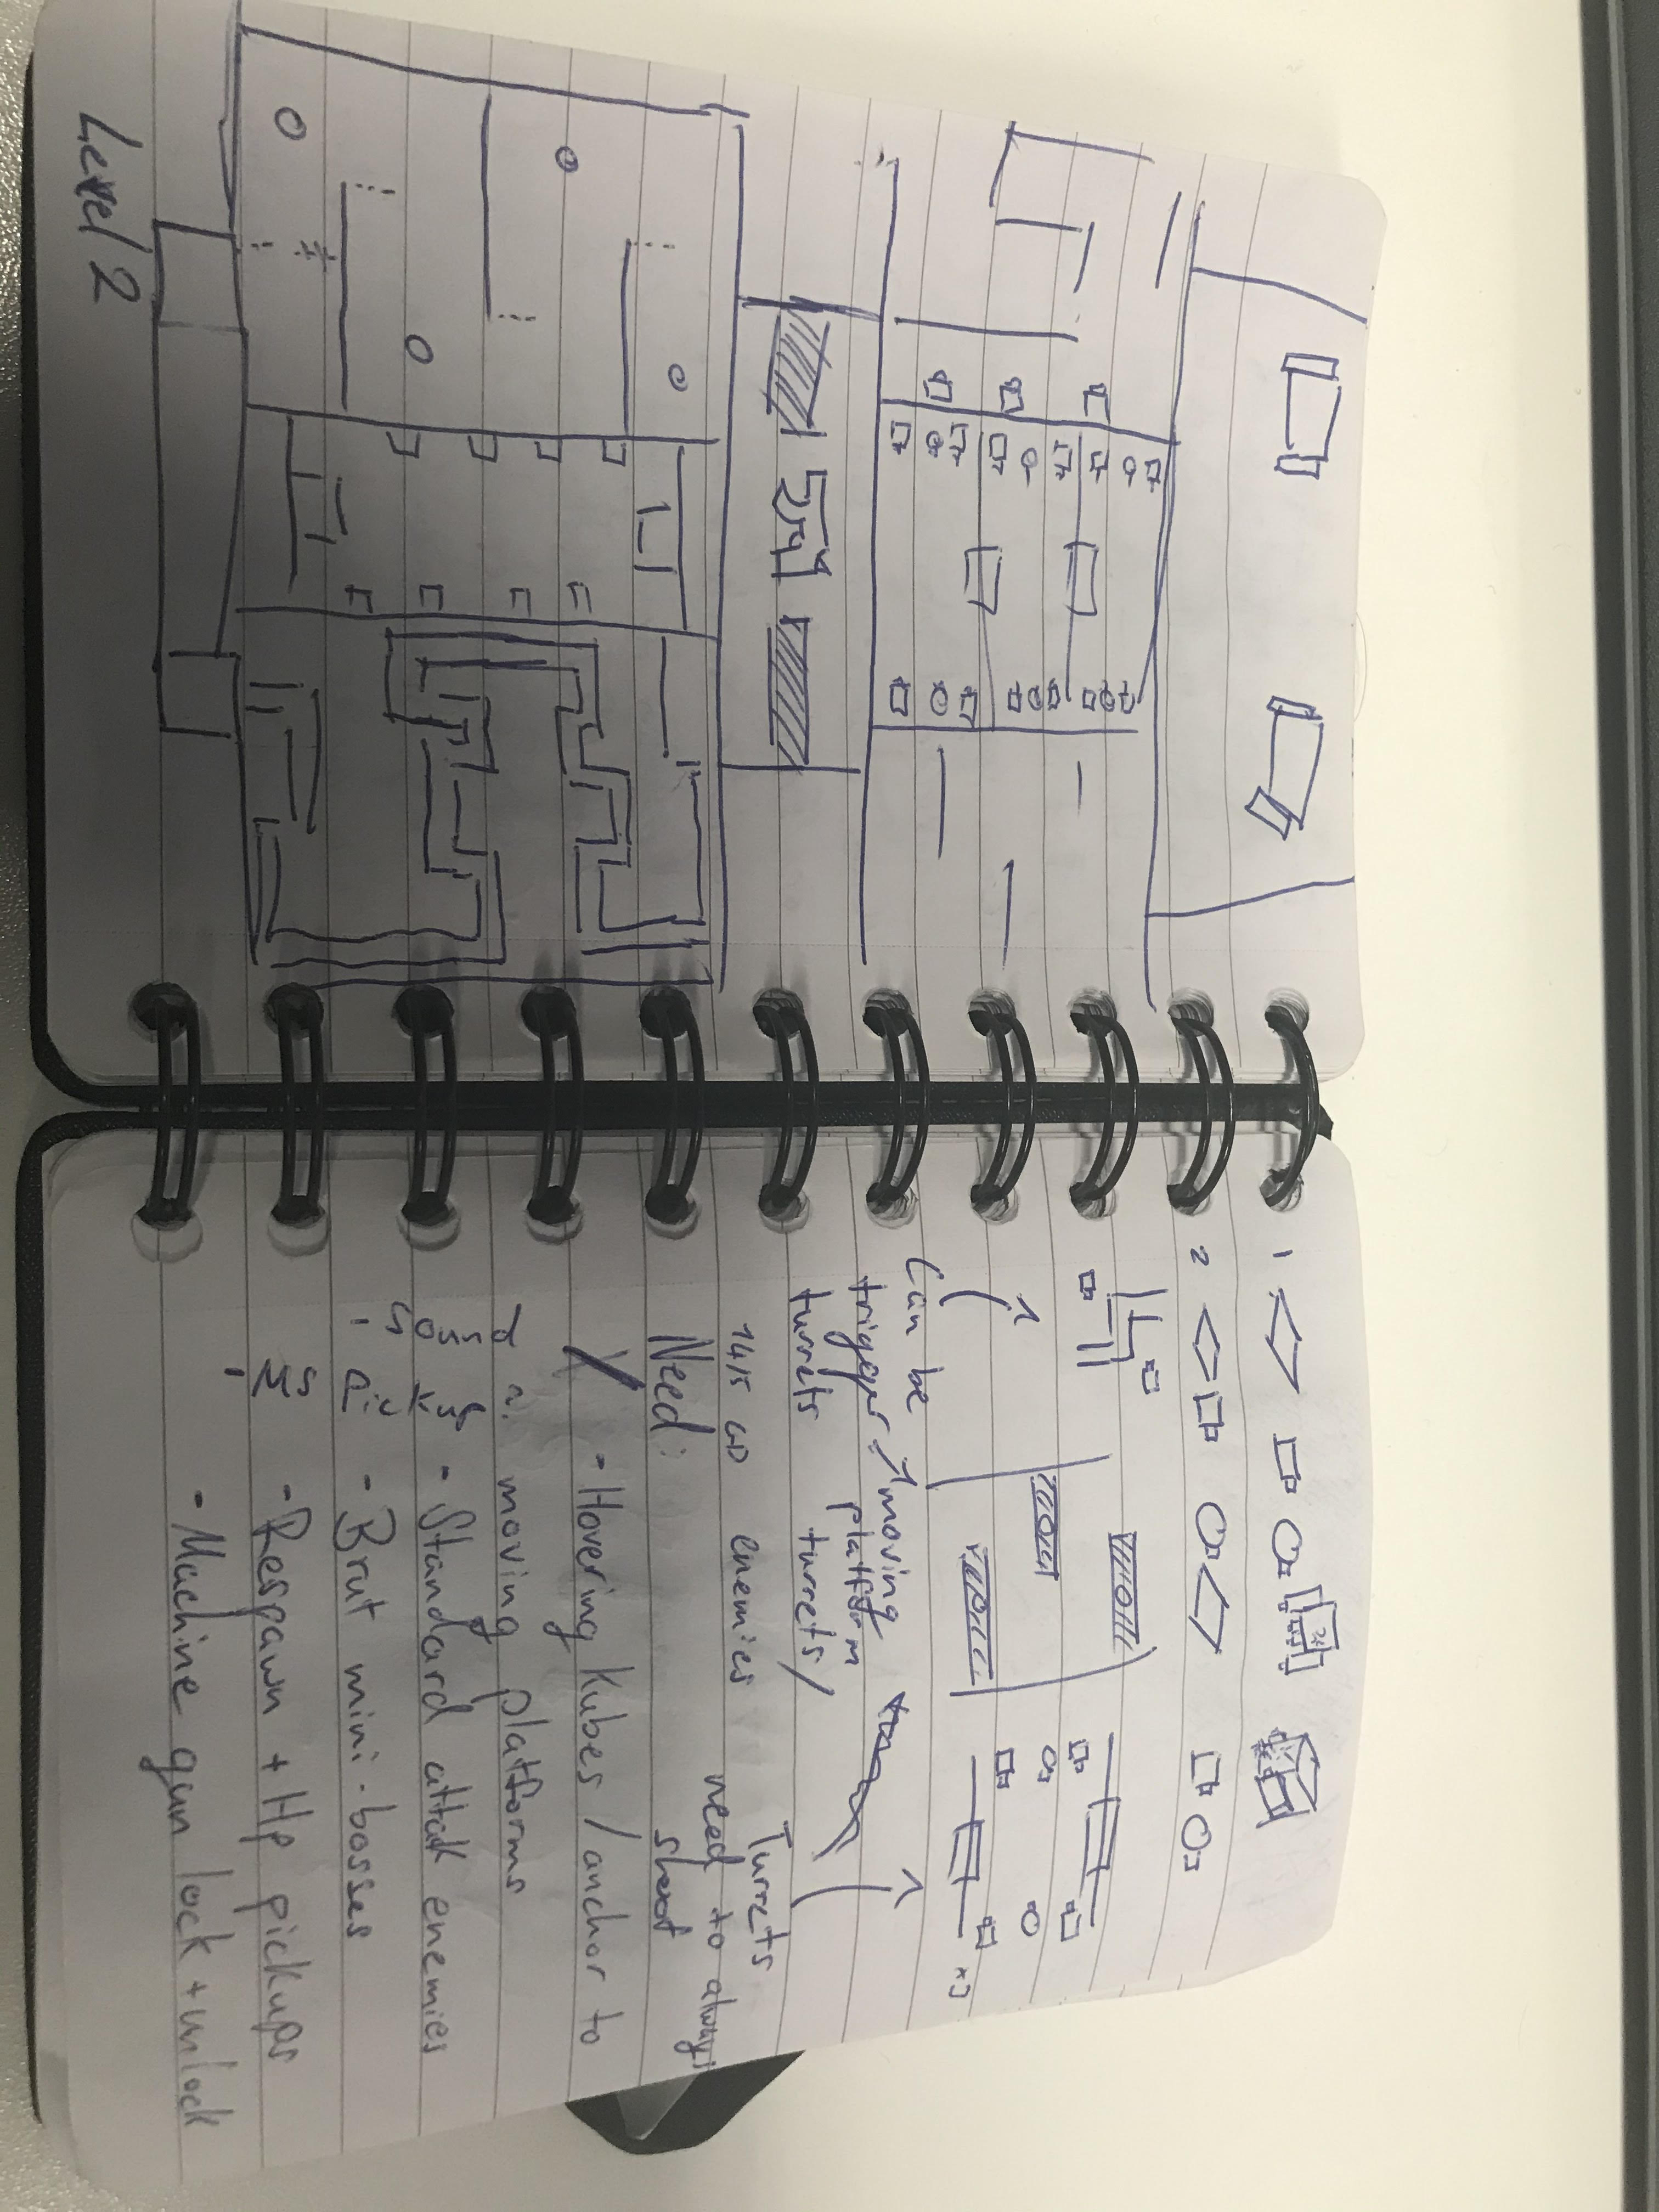 Level 2
1
2
Can be
trigger
turrets
moving
platform
turrets/
Turrets
need to always
shoot
14/15 GD enemies
x3
Need:
- Hovering Kubes / anchor to
moving platforms
- Standard attak enemies
- Brut mini-bosses
- Respawn + Hp pickups
- Machine gun lock + unlock